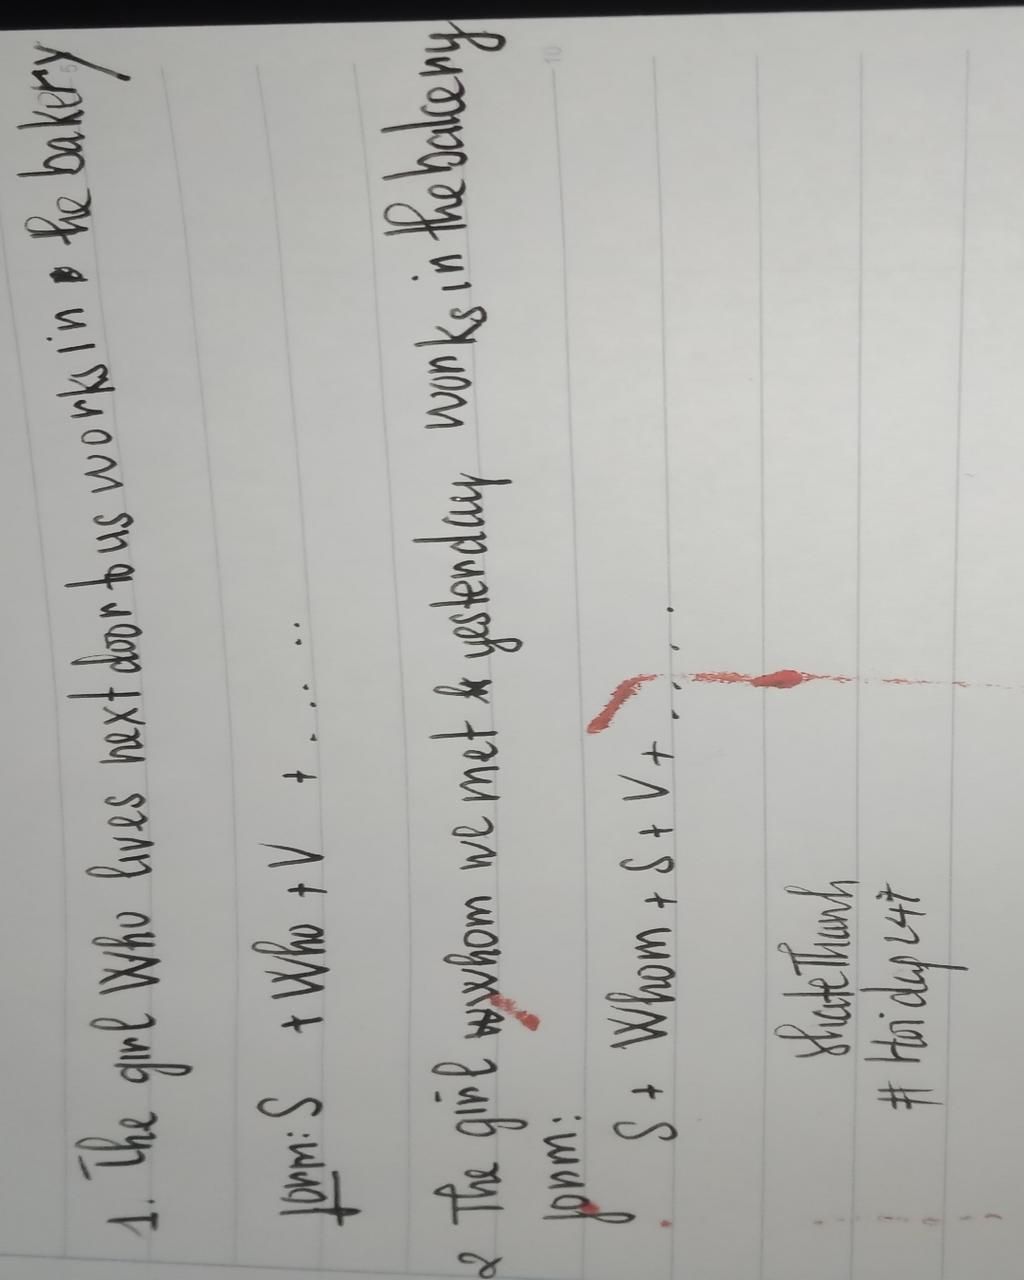 1. The girl Who lives next door to us works in the bakery
form: S + Who + V + ......
2 The girl whom we met yesterday works in the bakery
form:
S + Whom + S + V + ....
# Hoidap247